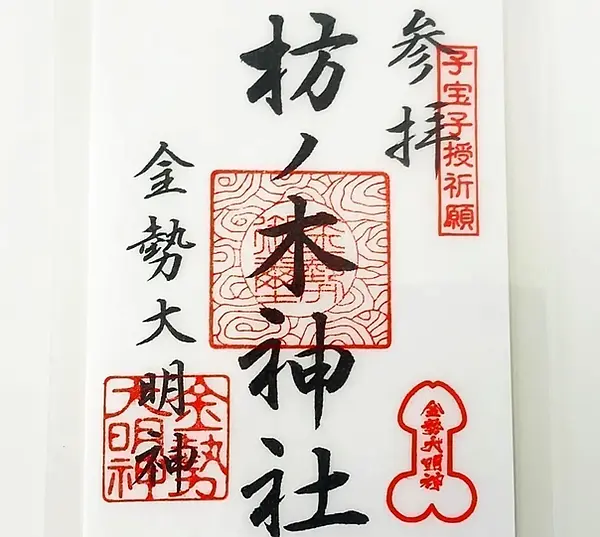 参拝
子宝子授祈願
枋ノ木神社
金勢大明神
金勢大明神
金勢大明神